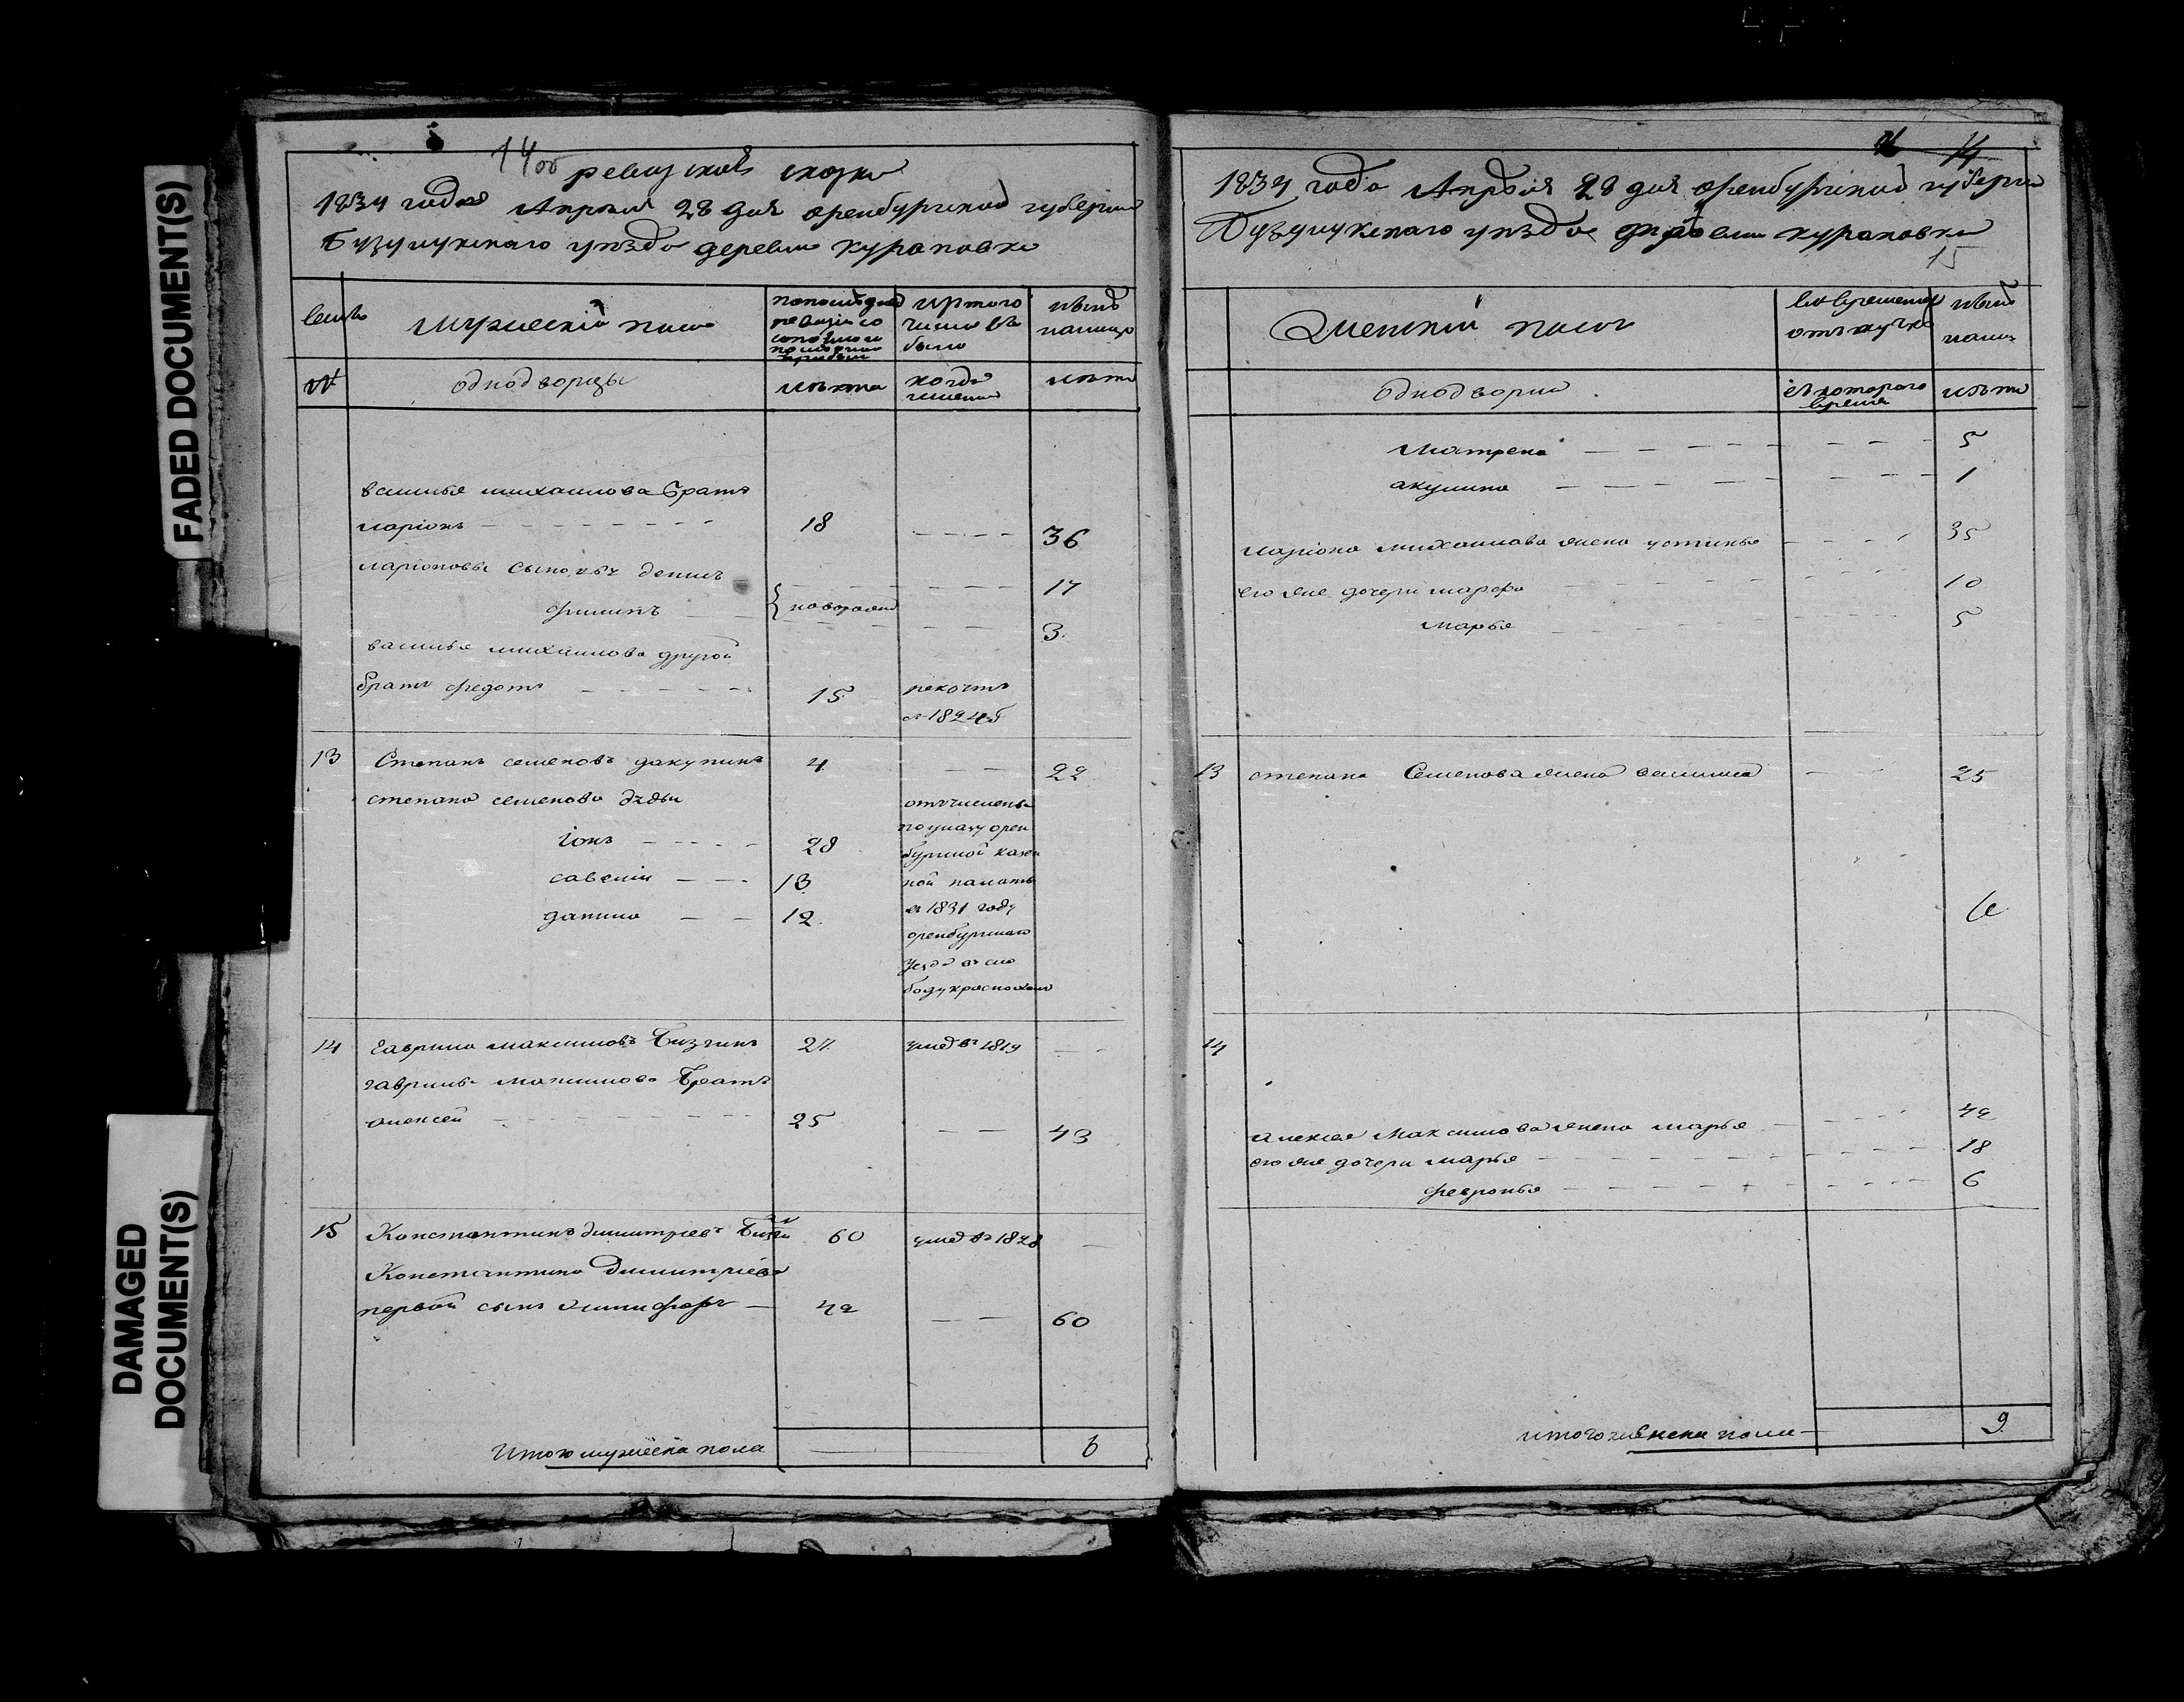 FADED DOCUMENT(S)
DAMAGED DOCUMENT(S)
14об
ревизская сказка
1834 года Апреля 28 дня оренбургской губернии
Бузулукскаго уезда деревни кураповки
семьи
мужеский полъ
по последней ревизии состояло и после оной прибыло
изъ того числа выбыло
ныне на лицо
№
однодворцы
лета
когда именно
лета
василья михаилова братъ
ларионъ 18 36
ларионовы сыновья денисъ 17
филипъ новорожд 3
василья михаилова другой
братъ федотъ 15 рекрутъ
в 1824 г
13 Степанъ семеновъ 4 22
степана семенова дяди
іонъ 28
савелій 13
данила 12
отчислены
по указу орен
бургской казен
ной палаты
в 1831 году
оренбургскаго
уезда въ сло
боду
14 гаврила максимовъ Бизгинъ 27 умер в 1819
гаврилы максимова братъ
алексей 25 43
15 Константинъ димитриевъ 60 умер в 1828
Константина димитриева
первой сынъ 42 60
Итого мужеска пола 6
14
1834 года Апреля 28 дня оренбургской губерни
Бузулукскаго уезда деревни кураповки
15
Женский полъ
во временной отлучке
ныне на лицо
однодворки
съ котораго время
лета
матрена 5
акулина 1
лариона михаилова жена устинья 35
его же дочери марфа 10
марья 5
13 степана Семенова жена василиса 25
14
алексея Максимова жена марья 42
его же дочери марья 18
февронья 6
итого женска пола 9